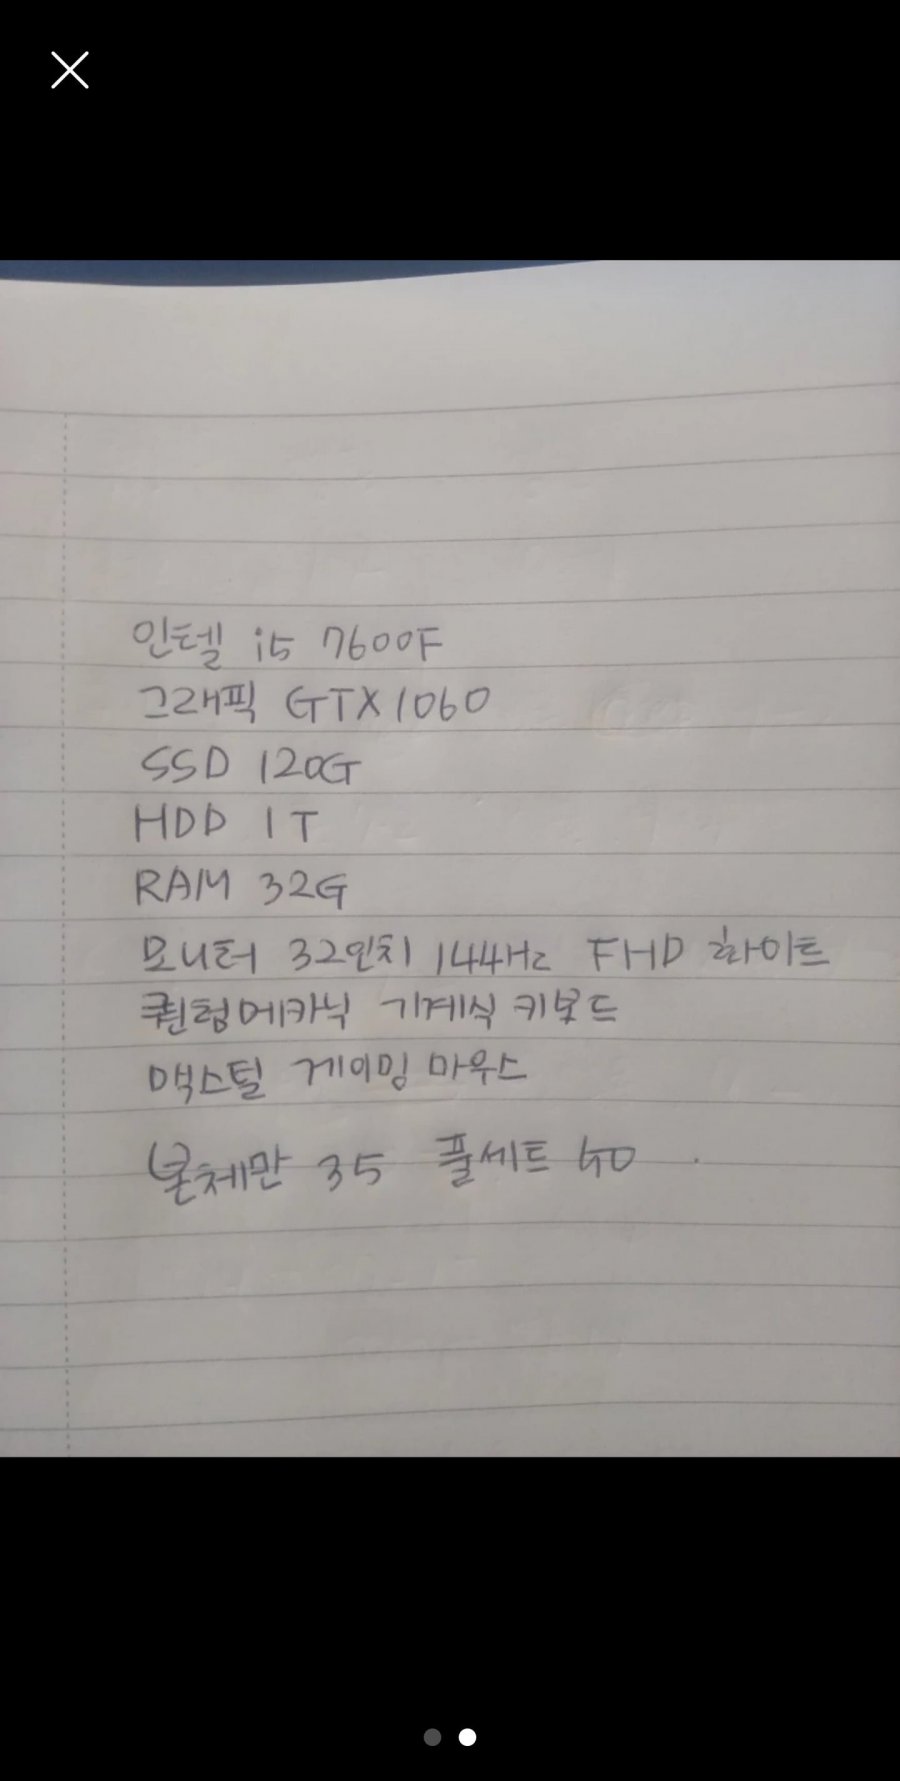 인텔 i5 7600F
그래픽 GTX1060
SSD 120G
HDD 1T
RAM 32G
모니터 32인치 144Hz FHD 화이트
퀀텀메카닉 기계식 키보드
맥스틸 게이밍 마우스
본체만 35 풀세트 40